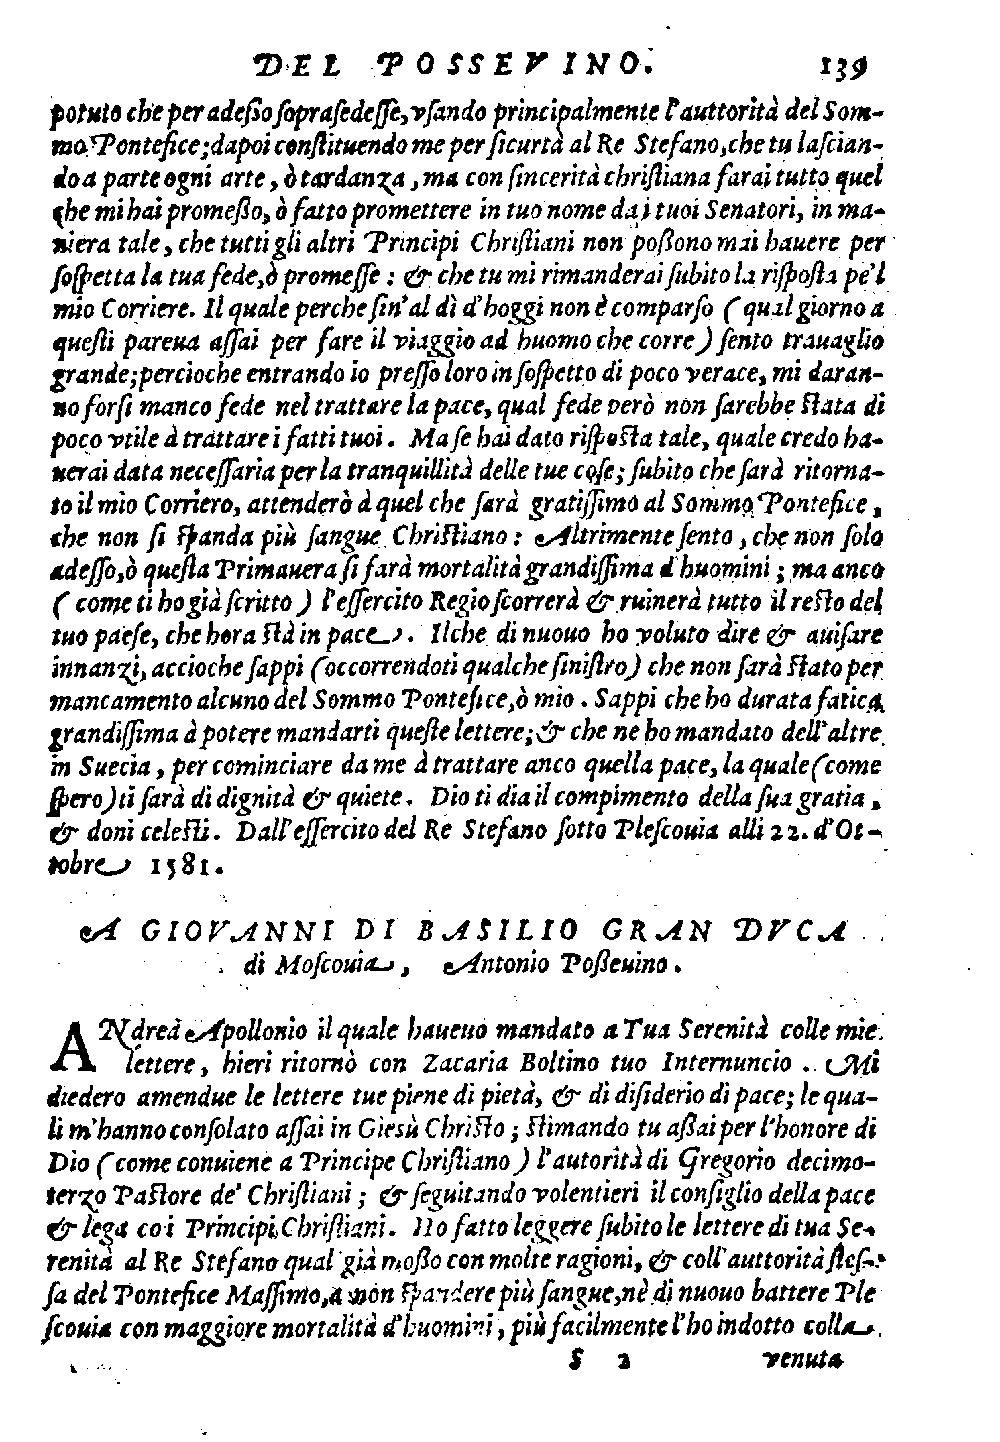 DEL POSSEVINO. 139
potuto che per adeßo soprasedesse, vsando principalmente l'auttorità del Som-
mo Pontefice; dapoi constituendo me per sicurtà al Re Stefano, che tu lascian-
do a parte ogni arte, ò tardanza, ma con sincerità christiana farai tutto quel
che mi hai promeßo, ò fatto promettere in tuo nome dai tuoi Senatori, in ma-
niera tale, che tutti gli altri Principi Christiani non poßono mai hauere per
sospetta la tua fede, ò promesse: & che tu mi rimanderai subito la risposta pe'l
mio Corriere. Il quale perche sin'al dì d'hoggi non è comparso (qual giorno a
questi pareua assai per fare il viaggio ad huomo che corre) sento trauaglio
grande; percioche entrando io presso loro in sospetto di poco verace, mi daran-
no forsi manco fede nel trattare la pace, qual fede però non sarebbe stata di
poco vtile à trattare i fatti tuoi. Ma se hai dato risposta tale, quale credo ha-
uerai data necessaria per la tranquillità delle tue cose; subito che sarà ritorna-
to il mio Corriero, attenderò à quel che sarà gratissimo al Sommo Pontefice,
che non si spanda più sangue Christiano: Altrimente sento, che non solo
adesso, ò questa Primauera si farà mortalità grandissima d'huomini; ma anco
(come ti ho già scritto) l'essercito Regio scorrerà & ruinerà tutto il resto del
tuo paese, che hora stà in pace. Ilche di nuouo ho voluto dire & auisare
innanzi, accioche sappi (occorrendoti qualche sinistro) che non sarà stato per
mancamento alcuno del Sommo Pontefice, ò mio. Sappi che ho durata fatica
grandissima à potere mandarti queste lettere; & che ne ho mandato dell'altre
in Suecia, per cominciare da me à trattare anco quella pace, la quale (come
spero) ti sarà di dignità & quiete. Dio ti dia il compimento della sua gratia,
& doni celesti. Dall'essercito del Re Stefano sotto Plescouia alli 22. d'Ot-
tobre 1581.
A GIOVANNI DI BASILIO GRAN DVCA
di Moscouia, Antonio Poßeuino.
ANdrea Apollonio il quale haueuo mandato a Tua Serenità colle mie
lettere, hieri ritornò con Zacaria Boltino tuo Internuncio. Mi
diedero amendue le lettere tue piene di pietà, & di disiderio di pace; le qua-
li m'hanno consolato assai in Giesù Christo; stimando tu aßai per l'honore di
Dio (come conuiene a Principe Christiano) l'autorità di Gregorio decimo-
terzo Pastore de' Christiani; & seguitando volentieri il consiglio della pace
& lega coi Principi Christiani. Ho fatto leggere subito le lettere di tua Se-
renità al Re Stefano qual già moßo con molte ragioni, & coll'auttorità stes-
sa del Pontefice Massimo, a non spandere più sangue, nè di nuouo battere Ple
scouia con maggiore mortalità d'huomini, più facilmente l'ho indotto colla
S 2 venuta